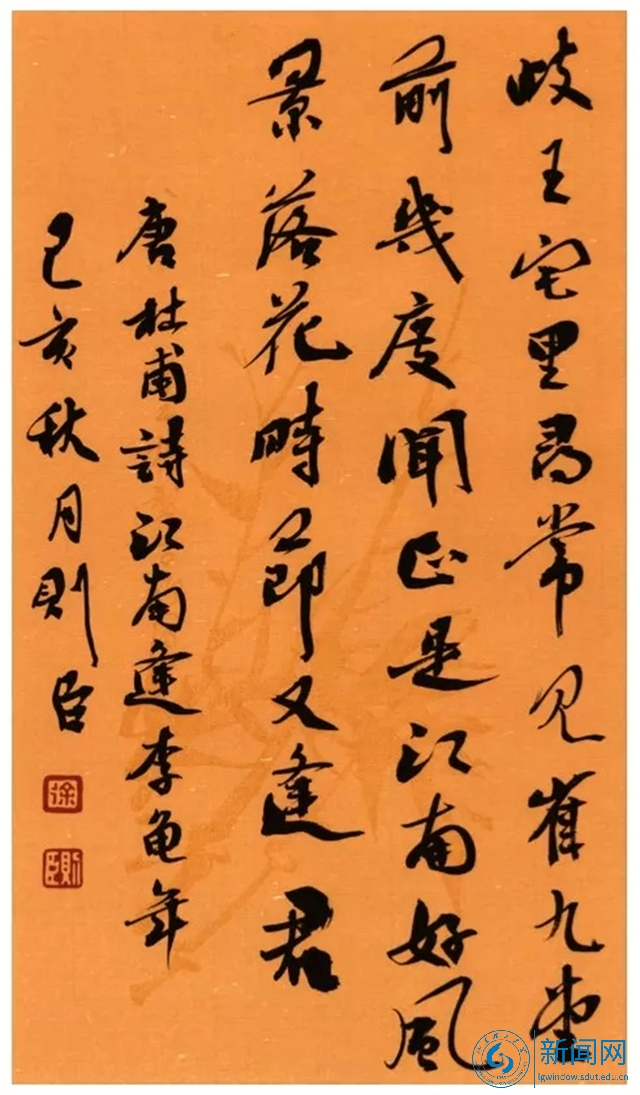 岐王宅里尋常見崔九堂
前幾度聞正是江南好風
景落花時節又逢君
唐杜甫詩江南逢李龜年
己亥秋月則臣
徐
則臣
新闻网
lgwindow.sdut.edu.cn